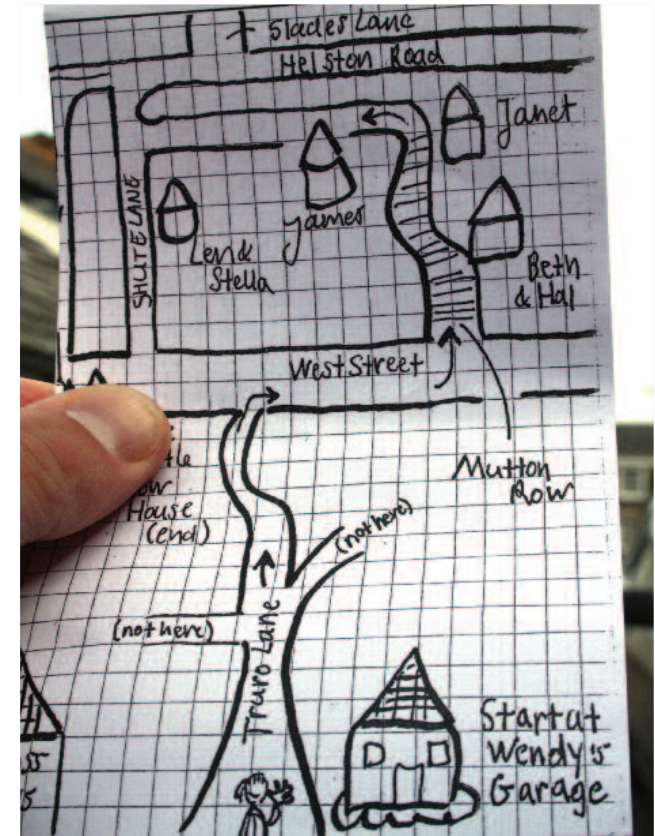 Slades Lane
Helston Road
Janet
SHUTE LANE
Len &
Stella
James
Beth
& Hal
West Street
Mutton
Row
House
(end)
(not here)
(not here)
Truro Lane
Start at
Wendy's
Garage